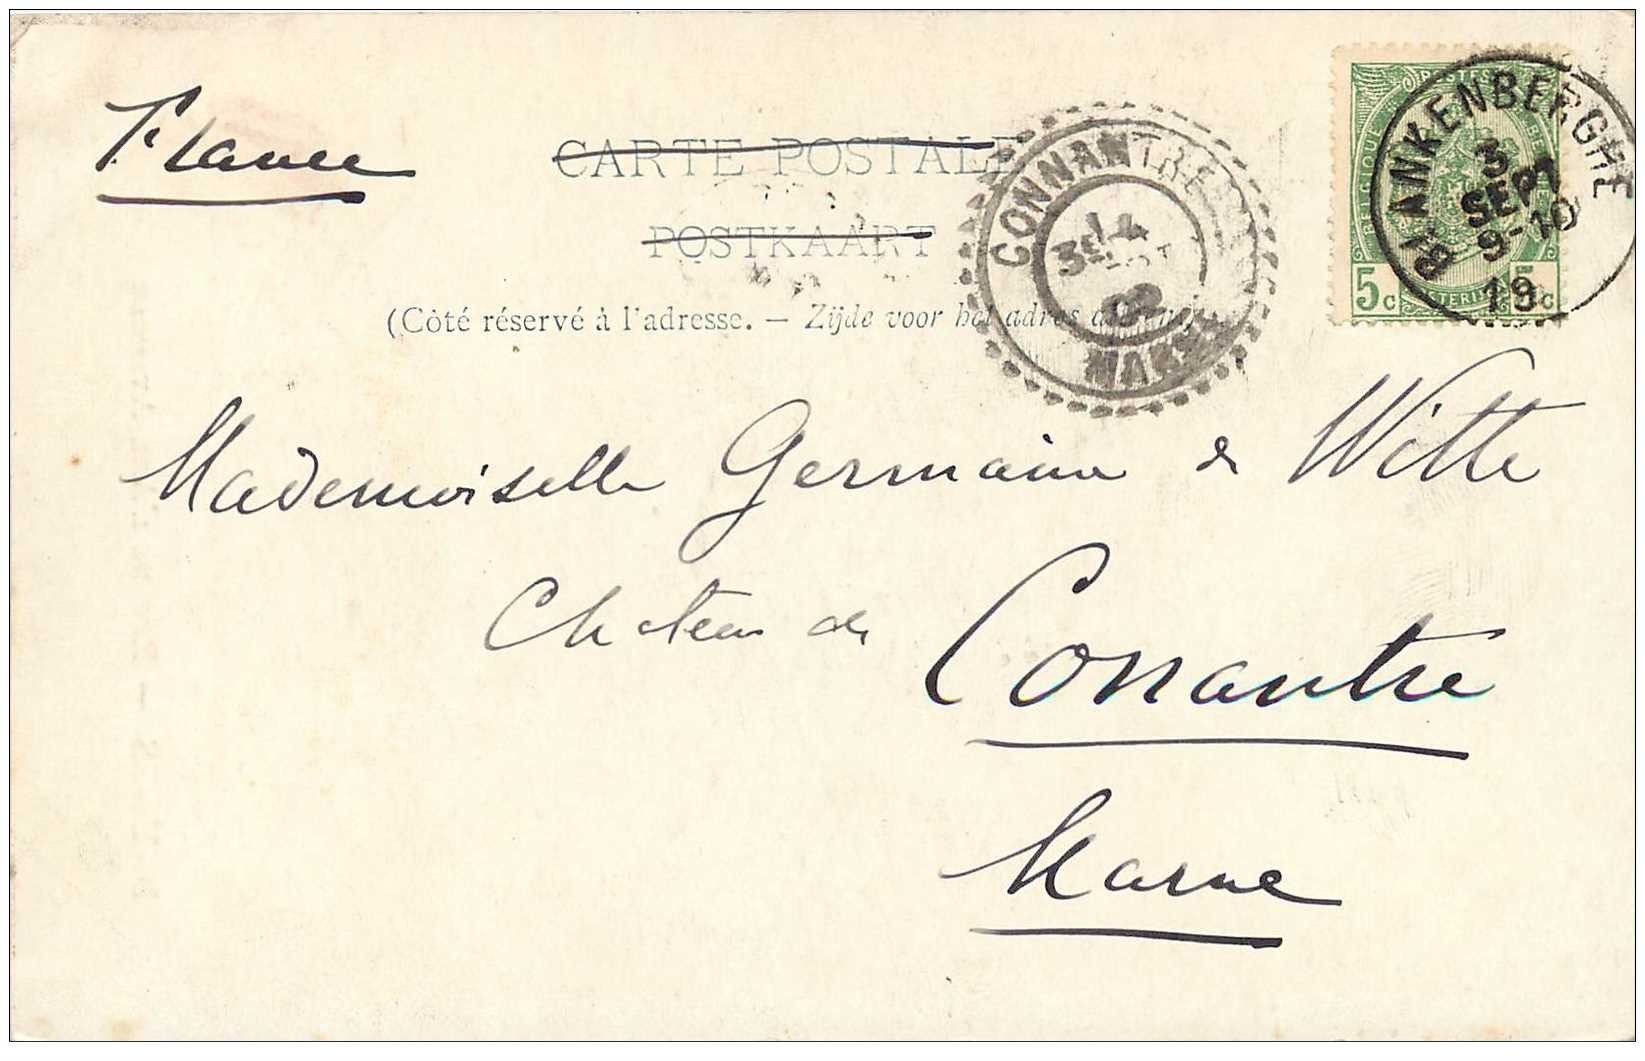 France
CARTE POSTALE
POSTKAART
(Côté réservé à l'adresse. — Zijde voor het adres
CONNANTRE
14
3E SEPT
02
MARNE
POSTES
BELGIQUE
5c 5c
BLANKENBERGHE
3
SEPT
9-10
19
Mademoiselle Germaine de Witte
Chateau de Conantre
Marne